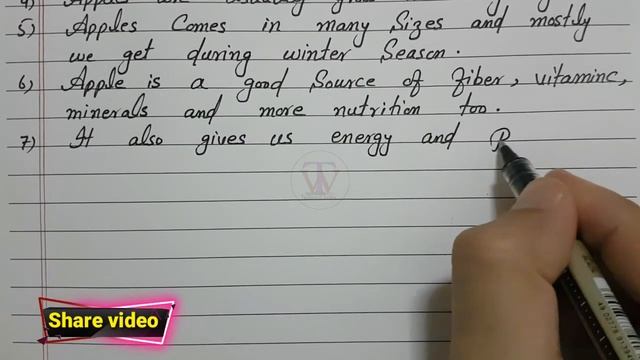 5) Apples Comes in many Sizes and mostly
we get during winter Season.
6) Apple is a good Source of fiber, vitaminc,
minerals and more nutrition too.
7) It also gives us energy and P
Share video